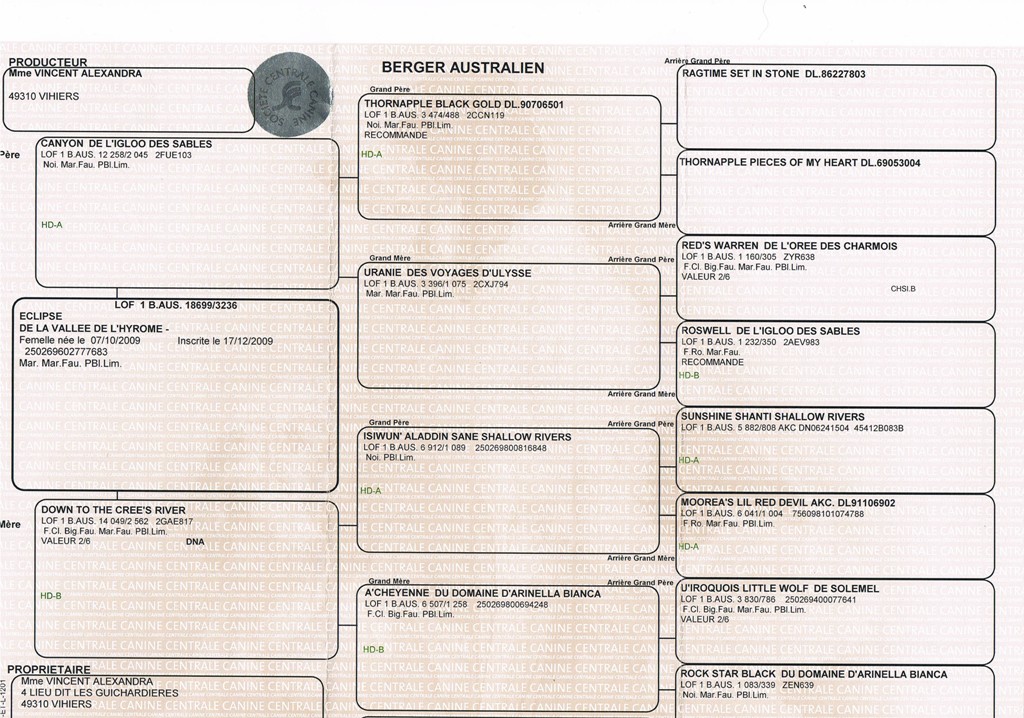 PRODUCTEUR
Mme VINCENT ALEXANDRA
49310 VIHIERS
SOCIETE CENTRALE CANINE
BERGER AUSTRALIEN
Père
CANYON DE L'IGLOO DES SABLES
LOF 1 B.AUS. 12 258/2 045 2FUE103
Noi. Mar.Fau. PBl.Lim.
HD-A
LOF 1 B.AUS. 18699/3236
ECLIPSE
DE LA VALLEE DE L'HYROME -
Femelle née le 07/10/2009 Inscrite le 17/12/2009
250269602777683
Mar. Mar.Fau. PBl.Lim.
Mère
DOWN TO THE CREE'S RIVER
LOF 1 B.AUS. 14 049/2 562 2GAE817
F.Cl. Big.Fau. Mar.Fau. PBl.Lim.
VALEUR 2/6 DNA
HD-B
PROPRIETAIRE
Mme VINCENT ALEXANDRA
4 LIEU DIT LES GUICHARDIERES
49310 VIHIERS
Grand Père
THORNAPPLE BLACK GOLD DL.90706501
LOF 1 B.AUS. 3 474/488 2CCN119
Noi. Mar.Fau. PBl.Lim.
RECOMMANDE
HD-A
Grand Mère
URANIE DES VOYAGES D'ULYSSE
LOF 1 B.AUS. 3 396/1 075 2CXJ794
Mar. Mar.Fau. PBl.Lim.
Grand Père
ISIWUN' ALADDIN SANE SHALLOW RIVERS
LOF 1 B.AUS. 6 912/1 089 250269800816848
Noi. PBl.Lim.
HD-A
Grand Mère
A'CHEYENNE DU DOMAINE D'ARINELLA BIANCA
LOF 1 B.AUS. 6 507/1 258 250269800694248
F.Cl. Big.Fau. PBl.Lim.
HD-B
Arrière Grand Père
RAGTIME SET IN STONE DL.86227803
THORNAPPLE PIECES OF MY HEART DL.69053004
Arrière Grand Mère
Arrière Grand Père
RED'S WARREN DE L'OREE DES CHARMOIS
LOF 1 B.AUS. 1 160/305 ZYR638
F.Cl. Big.Fau. Mar.Fau. PBl.Lim.
VALEUR 2/6
CHSI.B
ROSWELL DE L'IGLOO DES SABLES
LOF 1 B.AUS. 1 232/350 2AEV983
F.Ro. Mar.Fau.
RECOMMANDE
HD-B
Arrière Grand Mère
Arrière Grand Père
SUNSHINE SHANTI SHALLOW RIVERS
LOF 1 B.AUS. 5 882/808 AKC DN06241504 45412B083B
HD-A
MOOREA'S LIL RED DEVIL AKC. DL91106902
LOF 1 B.AUS. 6 041/1 004 756098101074788
F.Ro. Mar.Fau. PBl.Lim.
HD-A
Arrière Grand Mère
Arrière Grand Père
U'IROQUOIS LITTLE WOLF DE SOLEMEL
LOF 1 B.AUS. 3 830/786 250269400077641
F.Cl. Big.Fau. Mar.Fau. PBl.Lim.
VALEUR 2/6
ROCK STAR BLACK DU DOMAINE D'ARINELLA BIANCA
LOF 1 B.AUS. 1 083/339 ZEN639
Noi. Mar.Fau. PBl.Lim.